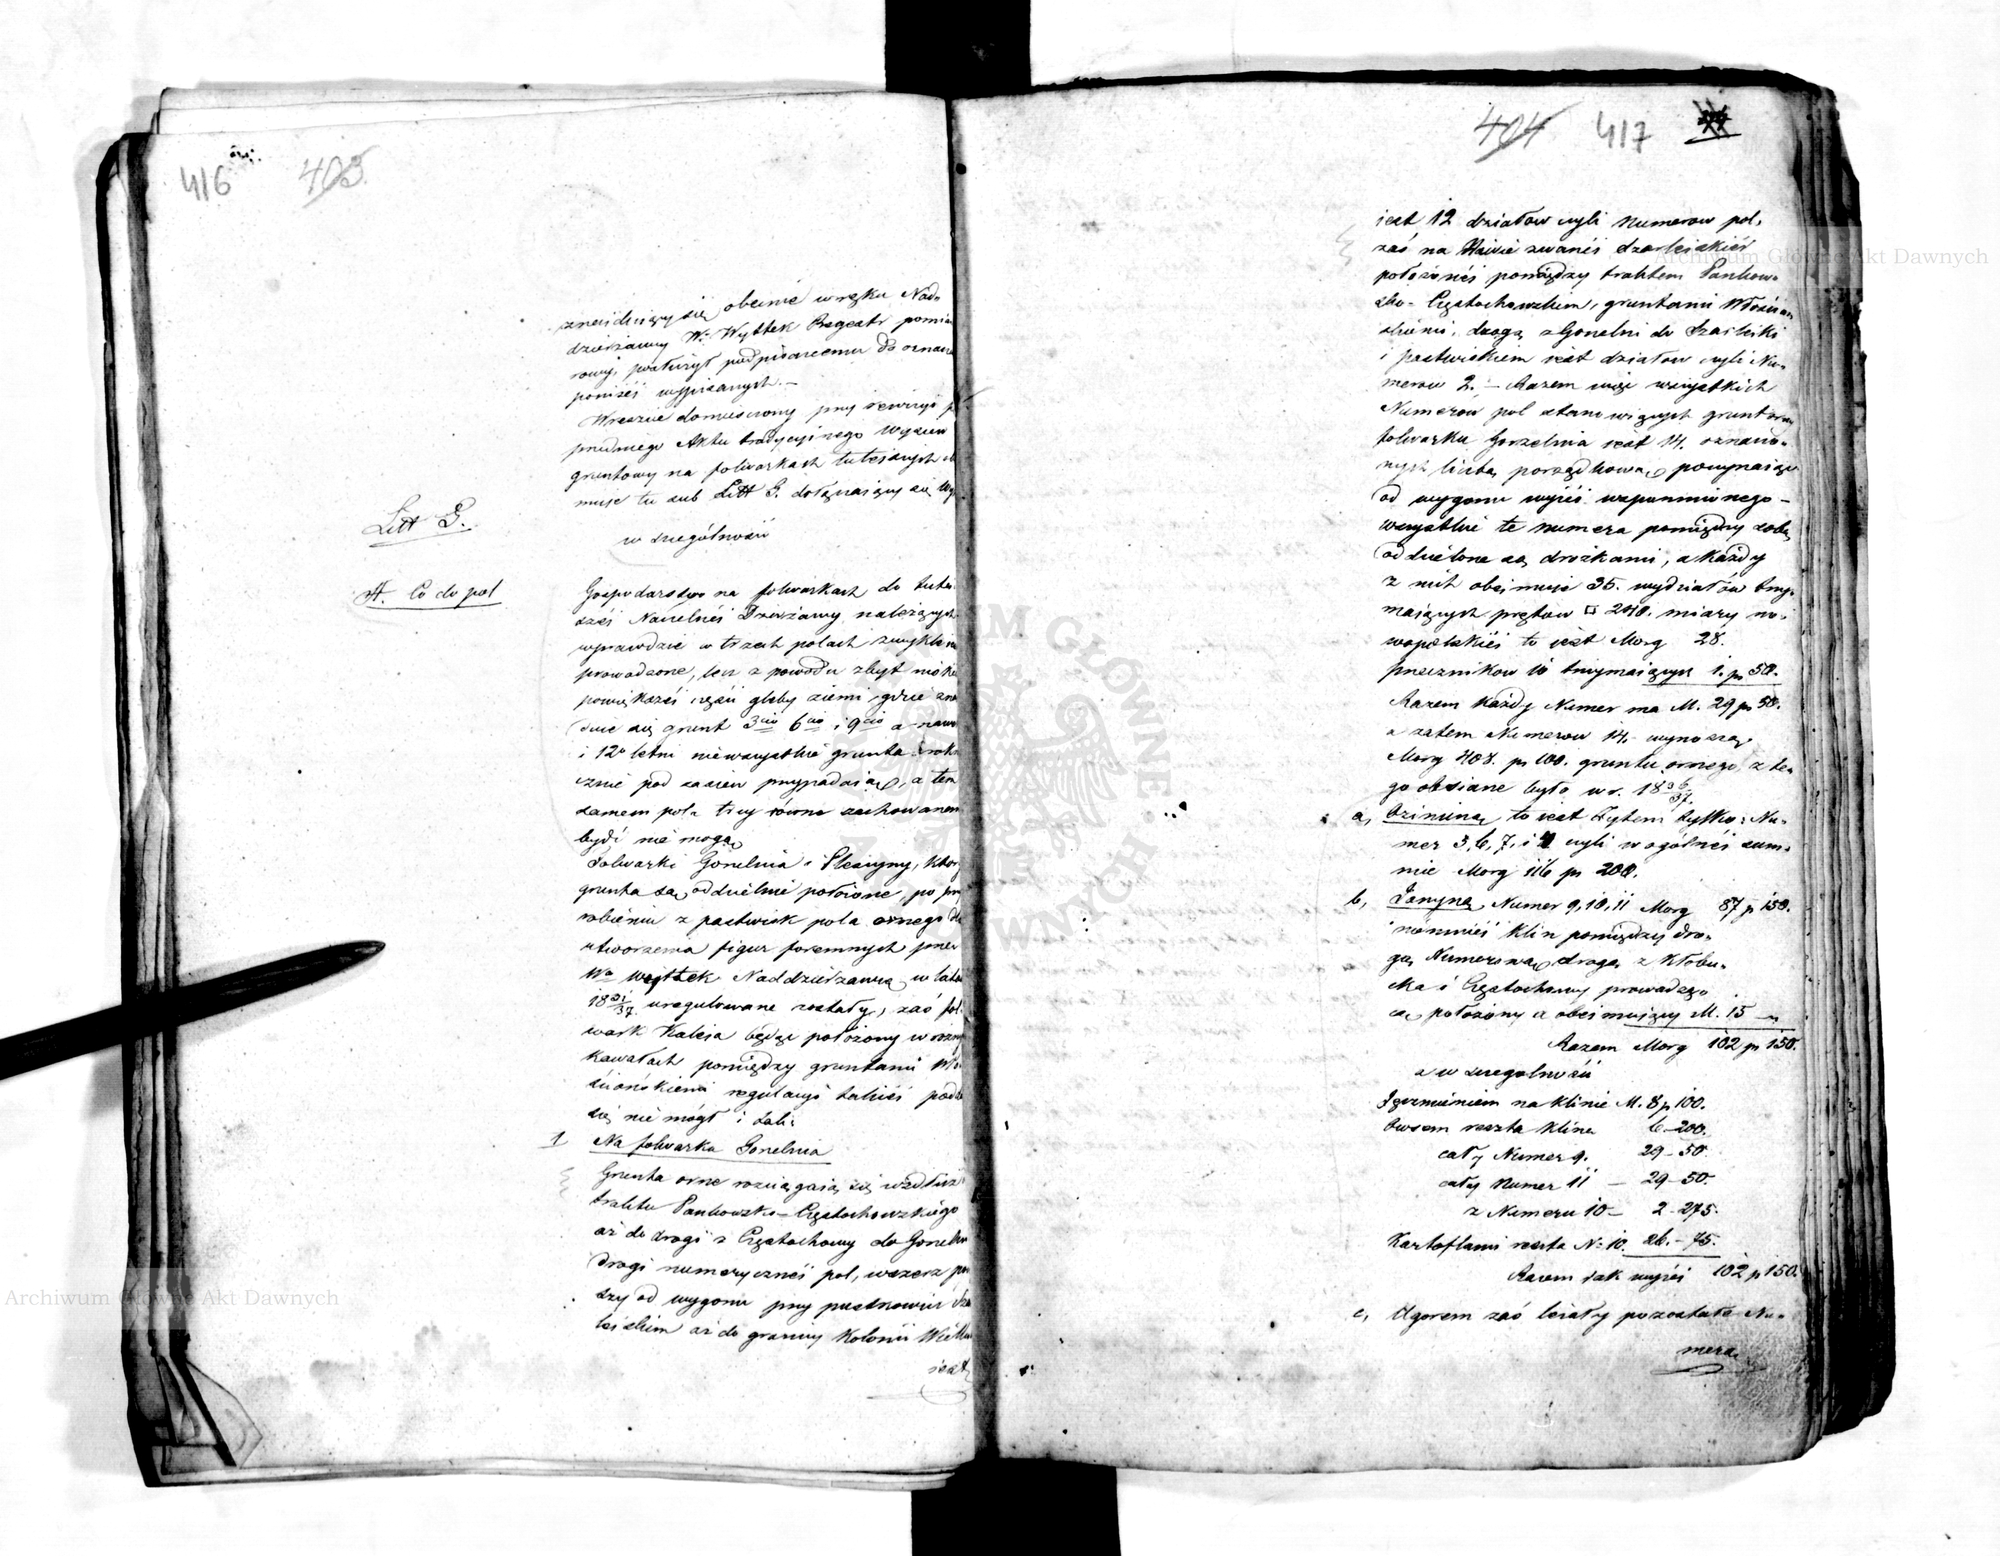 416 403
znajdujący się obecnie w ręku Nad-
dzierżawcy Wo Wyttek Regestr pomia
rowy, posłużył podpisanemu do oznacz
poniżéj wypisanych.—
Wreszcie domieszczony przy rewizyi
przedniego Aktu tradycyjnego Wysiew
gruntowy na folwarkach tutejszych
muje tu sub Litt G. dołączający się
Litt G.
w szczególności
A. Co do pol
Gospodarstwo na folwarkach do tute-
széj Naczelnéj Dzierżawy należących
wprawdzie w trzech polach zwykle
prowadzone, lecz z powodu zbyt nizkiéj
powiększéj części gleby ziemi, gdzie zna
duie się grunt 3cio 6cio i 9cio a nawet
i 12o letni niewszystkie grunta corok
cznie pod zasiew przypadaią, a tem
samem pola trzy równo zachowanem
bydź nie mogą
Folwarki Gorzelnia i Pleszyny, ktorych
grunta są oddzielnie położone, po przy
robieniu z pastwisk pola ornego dla
utworzenia figur foremnych przez
Wo Wyttek Naddzierżawcę w latach
1836/37 uregulowane zostały, zaś fol
wark Kalcia będąc położony w rożnych
kawałach pomiędzy gruntami Wło
ściańskiemi regulacyi takiéj poddać
się nie mógł i tak:
1 Na folwarku Gorzelnia
Grunta orne rozciągaią się wzdłuż
traktu Pankowsko-Częstochowskiego
aż do drogi z Częstochowy do Gorzelni
drogi numerycznéj pol, wszerz po
szy od wygonu przy pustkowiu Sza
leiskiem aż do granicy Kolonii Wielki
iest
404 417
iest 12 działow czyli Numerow pol,
zaś na Niwie zwanéj Szarleiskiéj
położonéj pomiędzy traktem Pankow-
sko-Częstochowskiem, gruntami Włościan
skiemi, drogą z Gorzelni do Szarleiki
i pastwiskiem iest działow czyli Nu-
merow 2.— Razem więc wszystkich
Numerow pol stanowiących grunt orny
folwarku Gorzelnia iest 14. oznaczo-
nych liczbą porządkową, poczynaiąc
od wygonu wyżéj wspomnionego —
wszystkie te numera pomiędzy sobą
oddzielone są drożkami, a każdy
z nich obejmuie 35. wydziałów trzy-
maiących prętow □ 240. miary no-
wopolskiéj to iest Morg 28.
przecznikow 10 trzymaiących 1. p 50.
Razem każdy Numer ma M. 29 p 50.
a zatem Numerow 14. wynoszą
Morg 408. p 100. gruntu ornego, z te-
go obsiane było w r. 1836/37.
a, Oziminą, to iest Żytem tylko: Nu-
mer 3, 6, 7, i 4 czyli w ogólnéj sum-
mie Morg 116 p 200.
b, Jarzyną, Numer 9, 10, 11 Morg 87 p 150.
niemniéj klin pomiędzy dro-
gą Numerową, drogą z Kłobu-
cka i Częstochowy prowadzą-
cą położony a obeimuiący M. 15 —
Razem Morg 102 p 150.
a w szczególności
Jęczmieniem na klinie M. 8 p 100.
Owsem reszta klina 6-200.
cały Numer 9. 29-50.
cały Numer 11 — 29-50.
z Numeru 10 — 2-275.
Kartoflami reszta No 10. 26.-75.
Razem iak wyżéj 102 p 150.
c, Ugorem zaś leżały pozostałe Nu-
mera
Archiwum Główne Akt Dawnych
Archiwum Główne Akt Dawnych